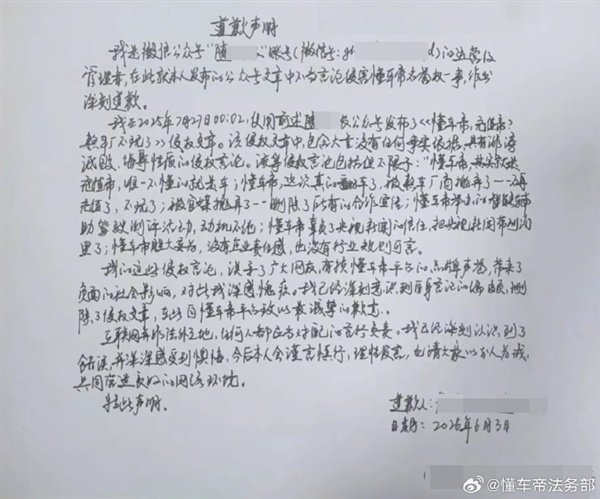 道歉声明
我是微信公众号"随 "账号(微信号:gh d)的运营及
管理者,在此就本人发布的公众号文章中不当言论侵害懂车帝名誉权一事,作出
深刻道歉。
我于2025年7月27日00:02,使用前述随 公众号发布了《懂车帝,充值帝?
被车厂玩了》侵权文章。该侵权文章中,包含大量没有任何事实依据,具有诽谤
诋毁、侮辱性质的侵权言论。该等侵权言论包括但不限于:"懂车帝,
充值帝,唯一不懂的就是车;懂车帝,这次真的翻车了,被车厂商抛弃了——
充值了,不玩了;被官媒抛弃了——删除了所有的合作宣传;懂车帝举办的智能辅
助驾驶测评活动,动机不纯;懂车帝辜负了央视新闻的信任,把央视新闻带到沟
里了;懂车帝胆大妄为,没有企业责任感,也没有行业规则可言。
我的这些侵权言论,误导了广大网友,有损懂车帝平台的品牌声誉,带来了
负面的社会影响,对此我深感愧疚。我已经深刻意识到自身言论的错误,删
除了侵权文章,在此向懂车帝平台致以最诚挚的歉意。
互联网并非法外之地,任何人都应当对自己的言行负责。我已经深刻认识到了
错误,并深深感受到懊悔,今后本人会谨言慎行,理性发言,也请大家以本人为戒,
共同营造良好的网络环境。
特此声明。
道歉人:
日期:2026年6月3日
@懂车帝法务部